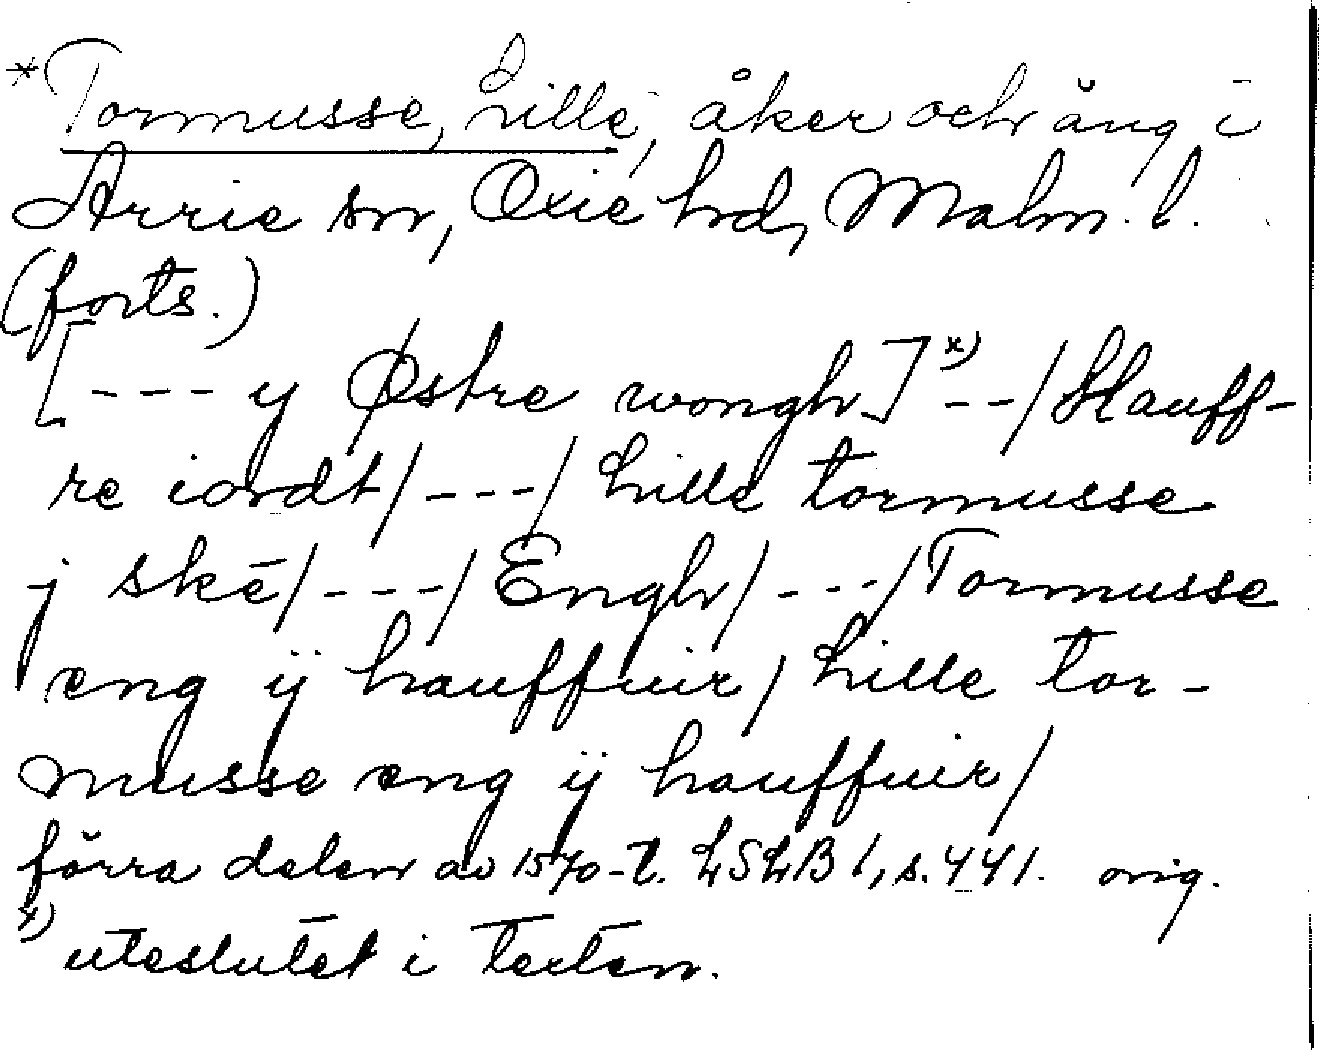 *Tormusse, Lille, åker och äng i
Arrie sn, Oxie hd, Malm. l.
(forts.)
[--- y Østre wongh]x) --/Hauff-
re iordt/---/Lille tormusse
j ske/---/Engh/---/Tormusse
eng ÿ hauffuir/Lille tor-
musse eng ÿ hauffuir/
förra delen av 1570-t. LSLB 1, s. 441. orig.
x) uteslutet i texten.